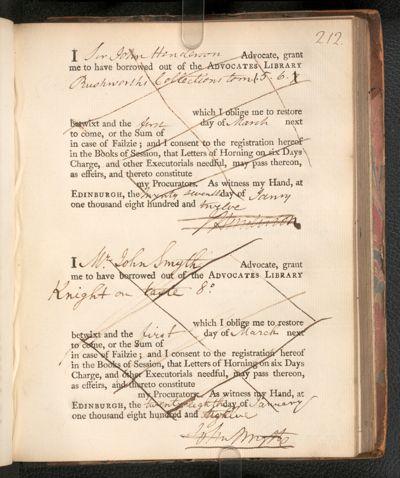 212.
I Sir John Henderson Advocate, grant
me to have borrowed out of the ADVOCATES LIBRARY
Rushworths Collections tom 5. 6.
which I oblige me to restore
betwixt and the first day of March next
to come, or the Sum of
in case of Failzie; and I consent to the registration hereof
in the Books of Session, that Letters of Horning on six Days
Charge, and other Executorials needful, may pass thereon,
as effeirs, and thereto constitute
my Procurators. As witness my Hand, at
EDINBURGH, the twenty seventh day of Janry
one thousand eight hundred and twelve
I Mr. John Smyth Advocate, grant
me to have borrowed out of the ADVOCATES LIBRARY
Knight on taste 8o
which I oblige me to restore
betwixt and the first day of March next
to come, or the Sum of
in case of Failzie; and I consent to the registration hereof
in the Books of Session, that Letters of Horning on six Days
Charge, and other Executorials needful, may pass thereon,
as effeirs, and thereto constitute
my Procurators. As witness my Hand, at
EDINBURGH, the twenty eighth day of January
one thousand eight hundred and twelve
John Smyth